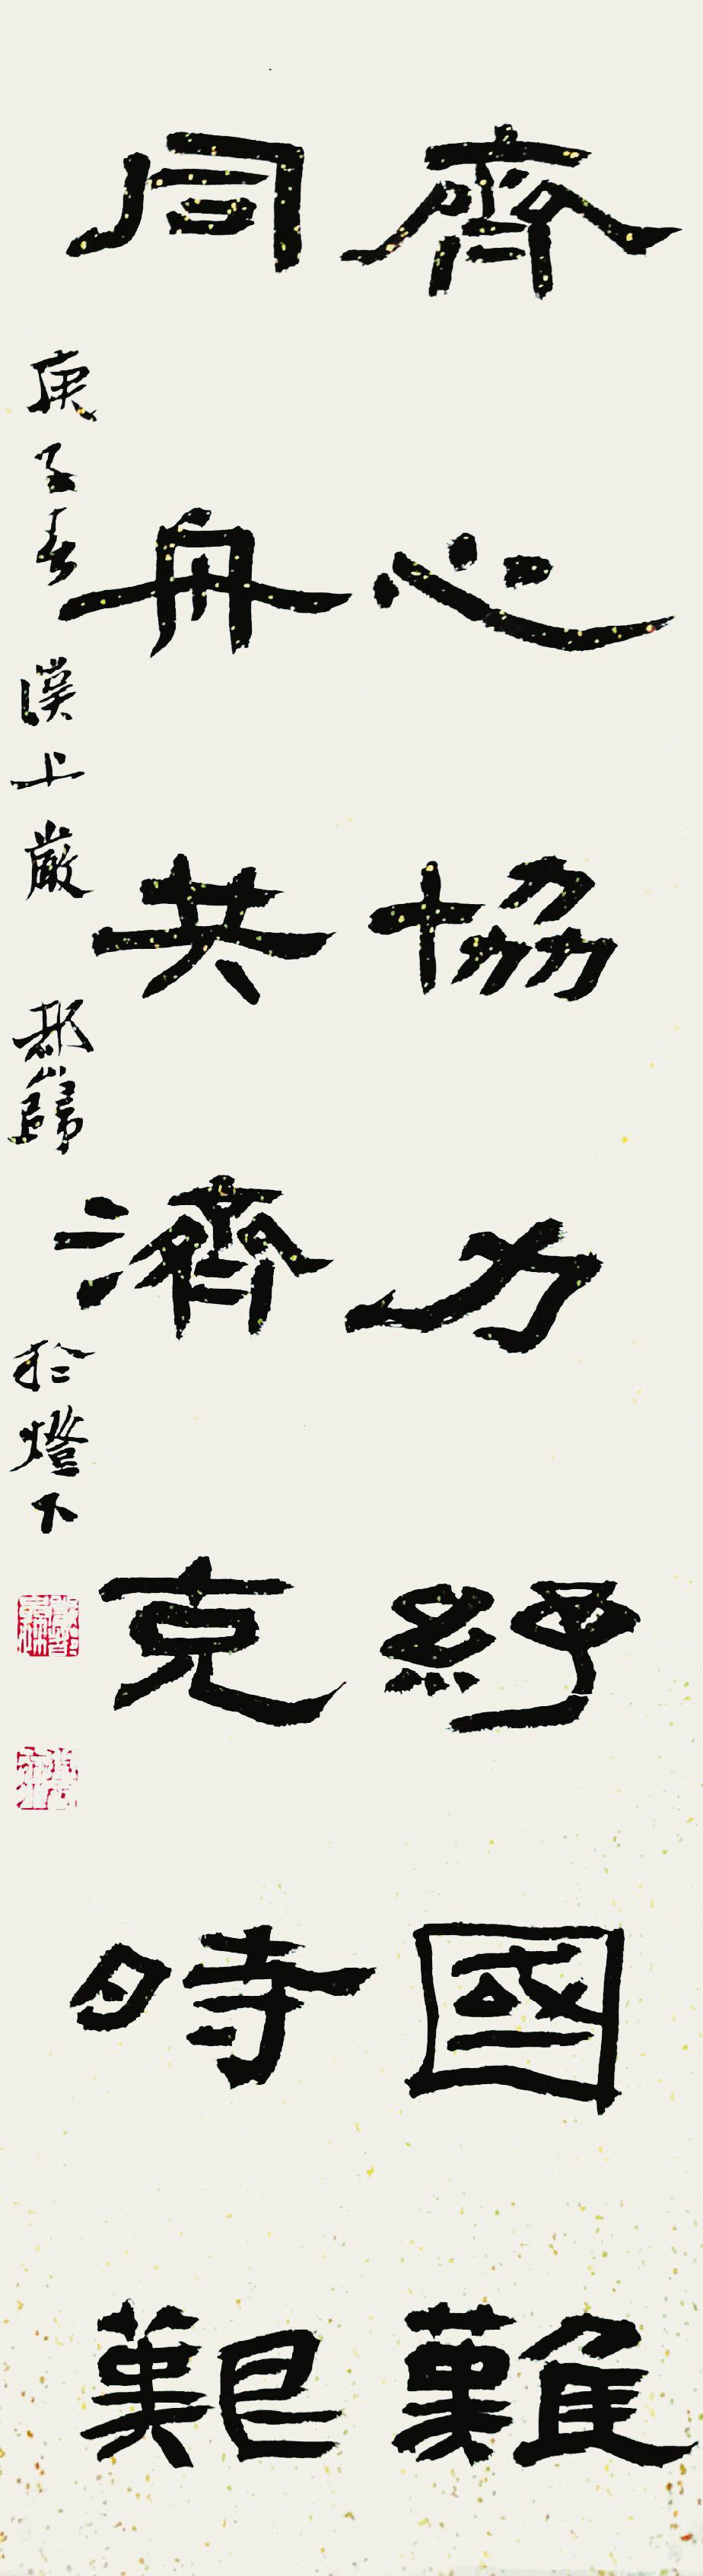 齊心協力紓國難
同舟共濟克時艱
庚子春 漢上嚴 彬歸 於燈下